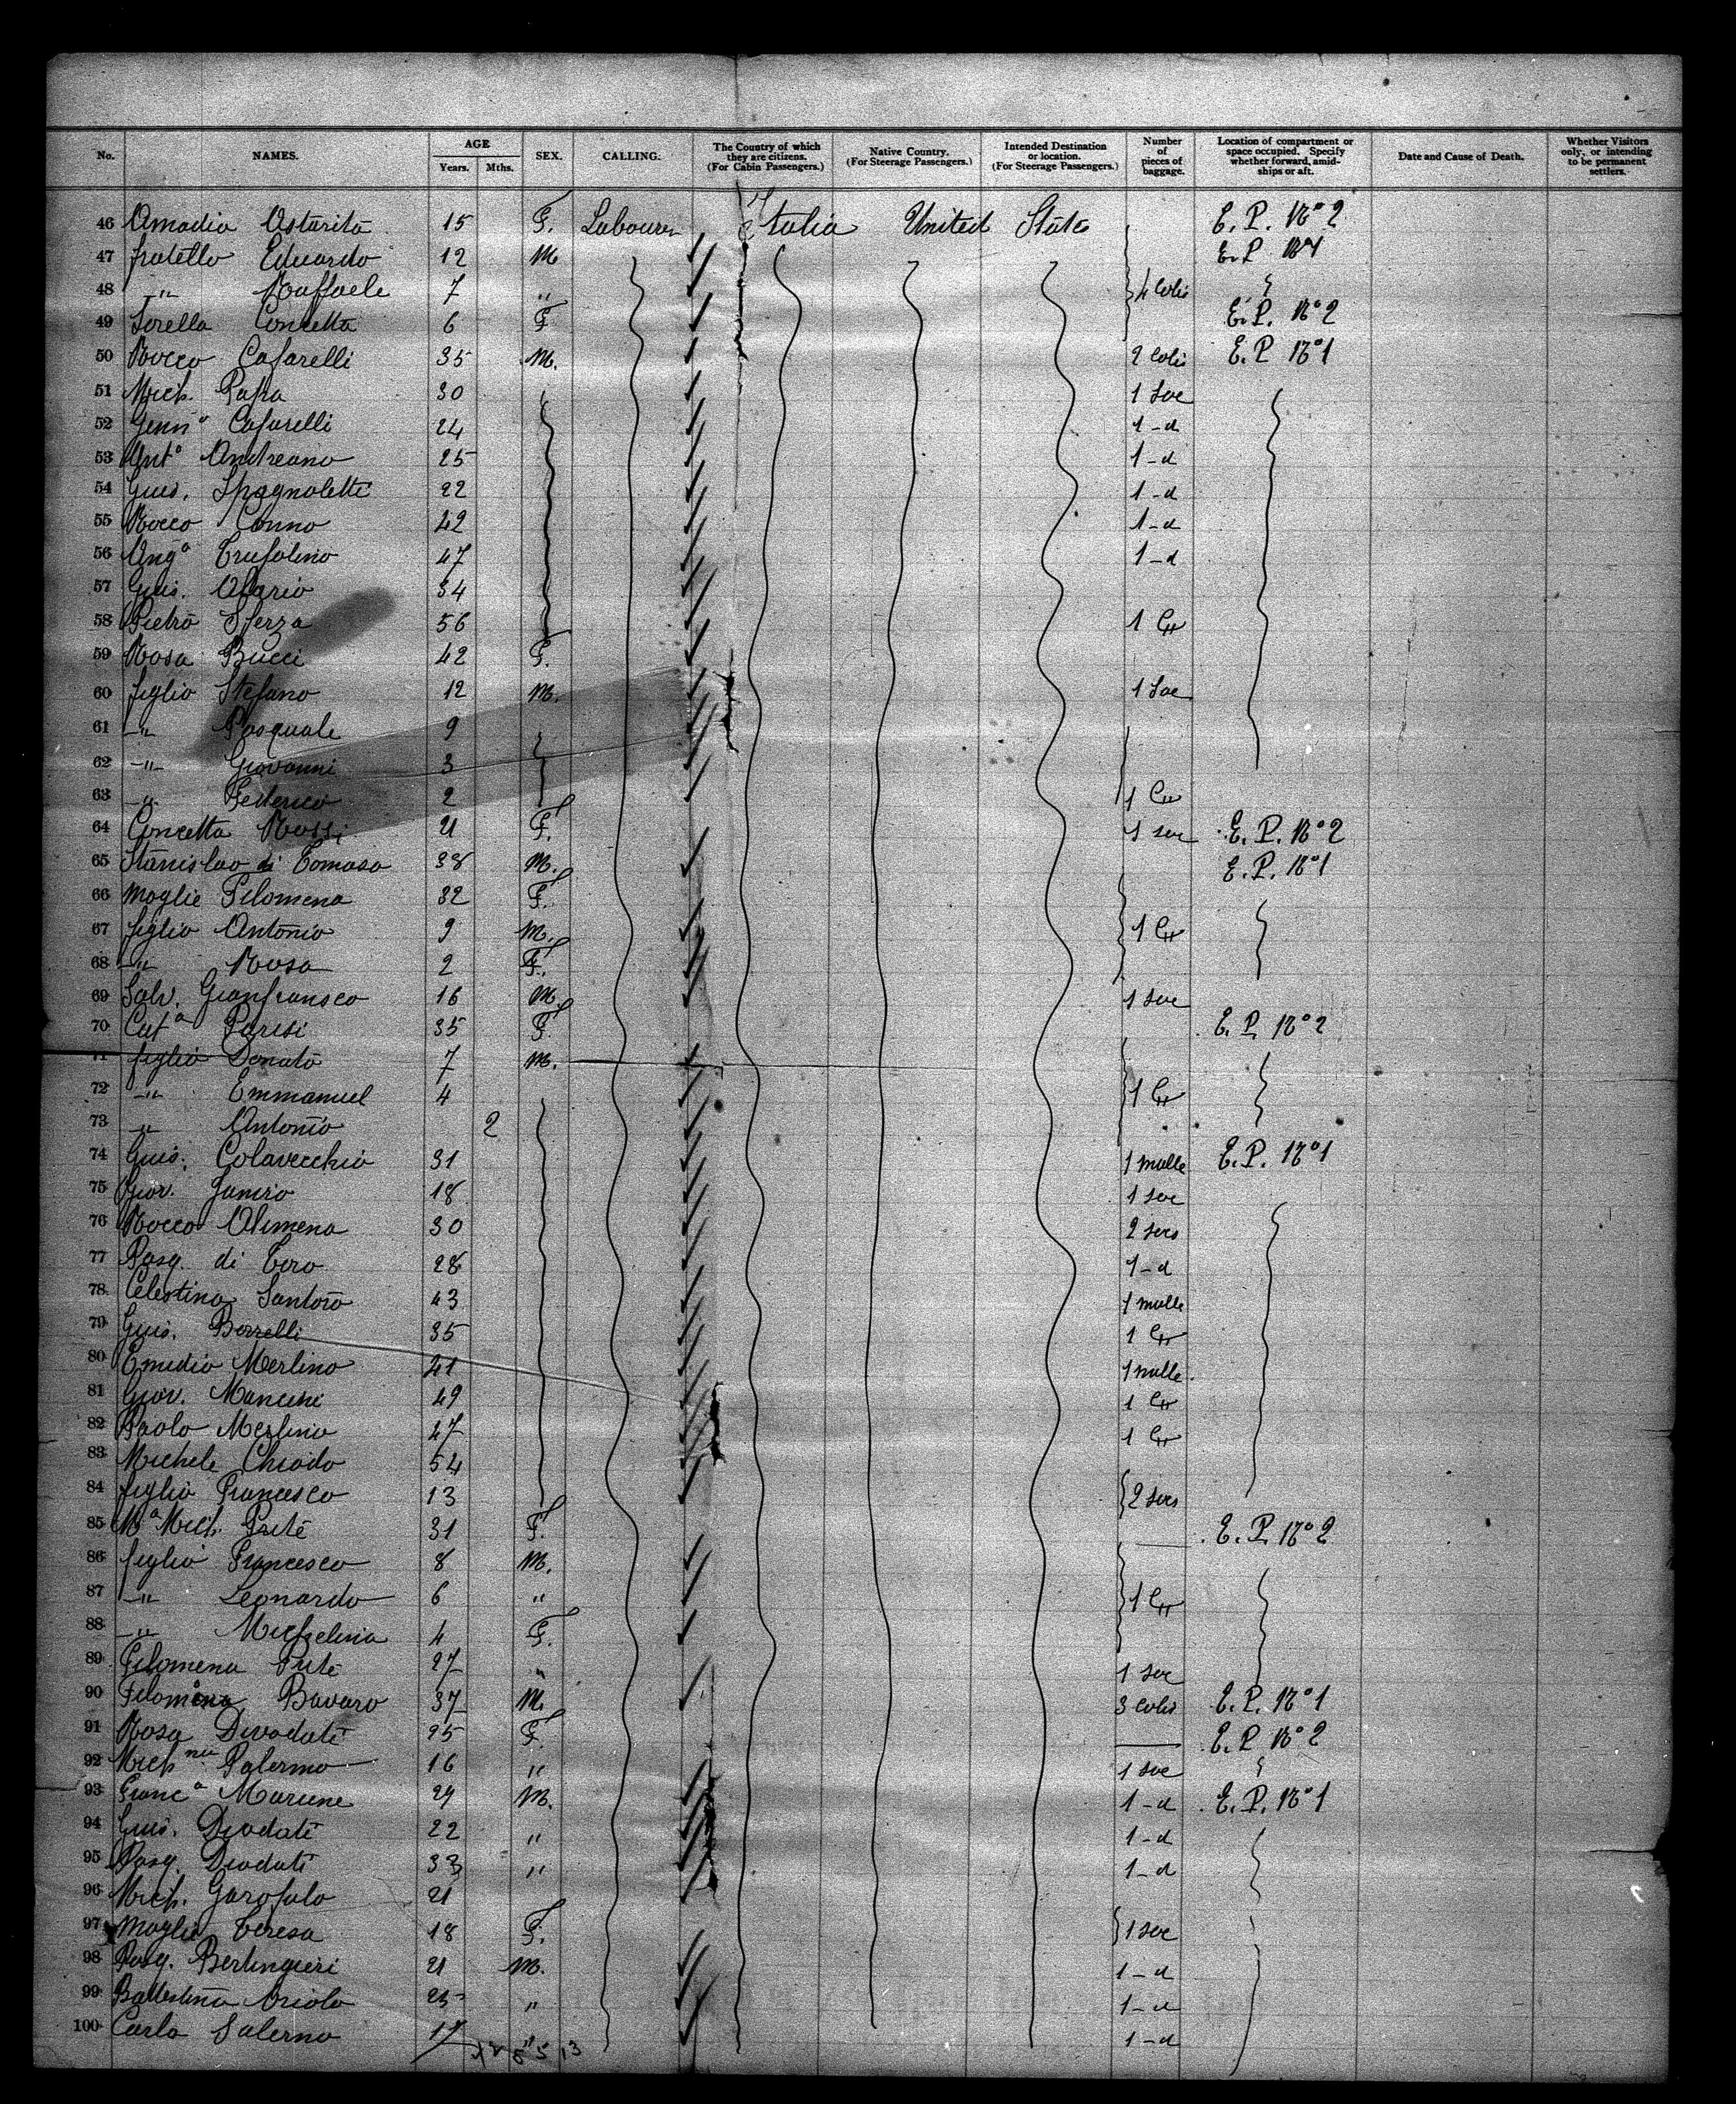 No. NAMES. AGE Years. Mths. SEX. CALLING. The Country of which they are citizens. (For Cabin Passengers.) Native Country. (For Steerage Passengers.) Intended Destination or location. (For Steerage Passengers.) Number of pieces of baggage. Location of compartment or space occupied. Specify whether forward, amidships or aft. Date and Cause of Death. Whether Visitors only, or intending to be permanent settlers.
46 Amadia Astarita 15 F. Labourer Italia United States E. P. No 2
47 fratello Eduardo 12 M. E. P. No 1
48 -"- Raffaele 7 " 4 Colis
49 Sorella Concetta 6 F. E. P. No 2
50 Rocco Cafarelli 35 M. 2 Colis E. P. No 1
51 Mich. Papa 30 1 Sac
52 Jenno Cafarelli 24 1 - d
53 Anto Andreano 25 1 - d
54 Guis. Spagnoletti 22 1 - d
55 Rocco Conno 42 1 - d
56 Ango Trufolino 47 1 - d
57 Guis. Alario 34
58 Pietro Sferza 56 1 Cu
59 Rosa Bucci 42 F.
60 figlio Stefano 12 M. 1 Sac
61 -"- Pasquale 9
62 -"- Giovanni 3
63 -"- Federico 2 1 Cu
64 Concetta Rossi 21 F. 1 sac E. P. No 2
65 Stanislao di Tomaso 38 M. E. P. No 1
66 Moglie Filomena 32 F.
67 figlio Antonio 9 M. 1 Cu
68 -"- Rosa 2 F.
69 Salv. Gianfransco 16 M. 1 sac
70 Cata Parisi 35 F. E. P. No 2
71 figlio Donato 7 M.
72 -"- Emmanuel 4 1 Cu
73 -"- Antonio 2
74 Guis. Colavecchio 31 1 malle E. P. No 1
75 Giov. Janiro 18 1 sac
76 Rocco Alimena 30 2 sacs
77 Pasq. di Toro 28 1 - d
78 Celestino Santoro 43 1 malle
79 Guis. Borrelli 35 1 Cu
80 Emidio Merlino 41 1 malle
81 Giov. Mancini 49 1 Cu
82 Paolo Merlino 47 1 Cu
83 Michele Chiodo 54
84 figlio Francesco 13 2 sacs
85 Ma Mich. Prite 31 F. E. P. No 2
86 figlio Francesco 8 M.
87 -"- Leonardo 6 " 1 Cu
88 -"- Michelina 4 F.
89 Filomena Prite 27 " 1 sac
90 Filomena Bavaro 37 M. 3 colis E. P. No 1
91 Rosa Divodate 25 F. E. P. No 2
92 Michna Palermo 16 " 1 sac
93 Franca Marune 24 M. 1 - d E. P. No 1
94 Guis. Diodati 22 " 1 - d
95 Pasq. Diodati 33 " 1 - d
96 Mich. Garofalo 21
97 Moglie Teresa 18 F. 1 sac
98 Pasq. Berlingieri 21 M. 1 - d
99 Battestina Oriolo 25 " 1 - d
100 Carlo Salerno 17 " 1 - d